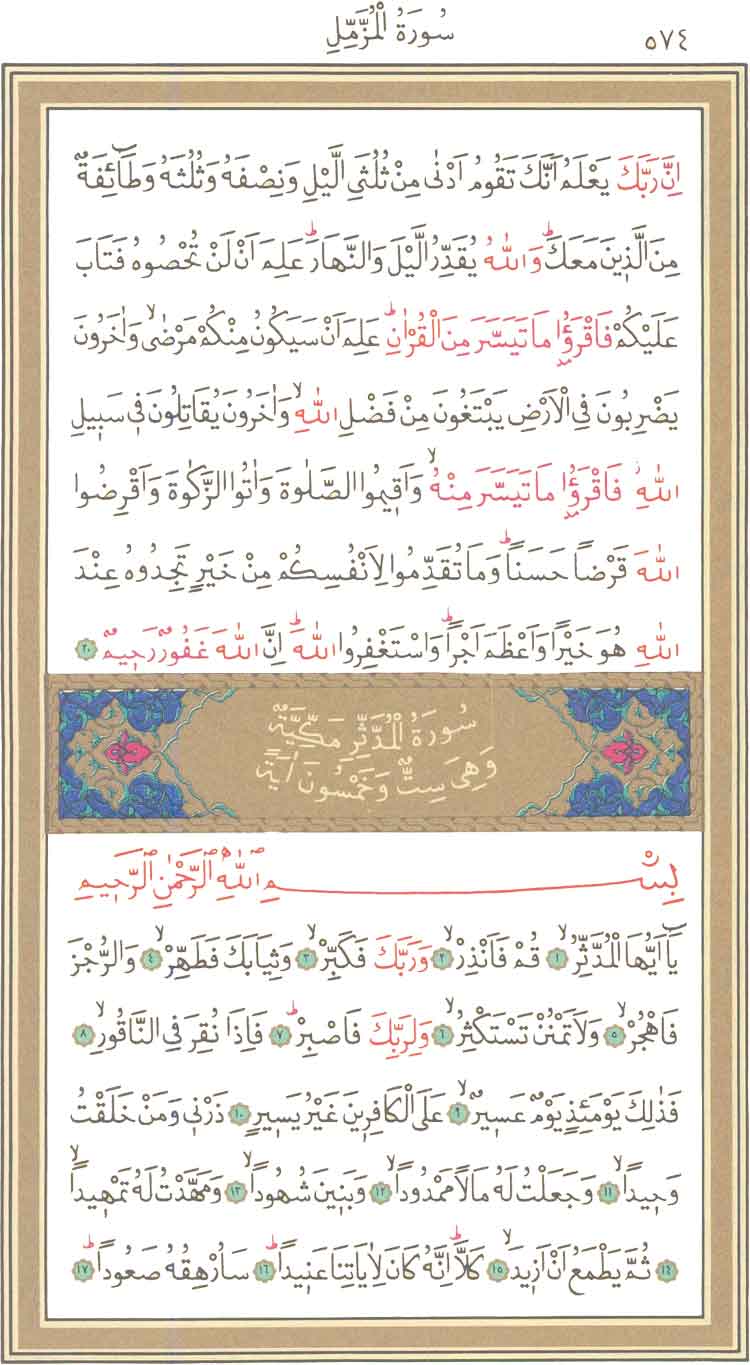 ٥٧٤
سُورَةُ الْمُزَّمِّلِ
اِنَّ رَبَّكَ يَعْلَمُ اَنَّكَ تَقُومُ اَدْنٰى مِنْ ثُلُثَيِ الَّيْلِ وَنِصْفَهُ وَثُلُثَهُ وَطَٓائِفَةٌ
مِنَ الَّذ۪ينَ مَعَكَۜ وَاللّٰهُ يُقَدِّرُ الَّيْلَ وَالنَّهَارَۜ عَلِمَ اَنْ لَنْ تُحْصُوهُ فَتَابَ
عَلَيْكُمْ فَاقْرَؤُ۫ا مَا تَيَسَّرَ مِنَ الْقُرْاٰنِۜ عَلِمَ اَنْ سَيَكُونُ مِنْكُمْ مَرْضٰىۙ وَاٰخَرُونَ
يَضْرِبُونَ فِي الْاَرْضِ يَبْتَغُونَ مِنْ فَضْلِ اللّٰهِۙ وَاٰخَرُونَ يُقَاتِلُونَ ف۪ي سَب۪يلِ
اللّٰهِۘ فَاقْرَؤُ۫ا مَا تَيَسَّرَ مِنْهُۙ وَاَق۪يمُوا الصَّلٰوةَ وَاٰتُوا الزَّكٰوةَ وَاَقْرِضُوا
اللّٰهَ قَرْضاً حَسَناًۜ وَمَا تُقَدِّمُوا لِاَنْفُسِكُمْ مِنْ خَيْرٍ تَجِدُوهُ عِنْدَ
اللّٰهِ هُوَ خَيْراً وَاَعْظَمَ اَجْراًۜ وَاسْتَغْفِرُوا اللّٰهَۜ اِنَّ اللّٰهَ غَفُورٌ رَح۪يمٌ ﴿٢٠﴾
سُورَةُ الْمُدَّثِّرِ مَكِّيَّةٌ
وَهِيَ سِتٌّ وَخَمْسُونَ اٰيَةً
بِسْمِ اللّٰهِ الرَّحْمٰنِ الرَّح۪يمِ
يَٓا اَيُّهَا الْمُدَّثِّرُۙ ﴿١﴾ قُمْ فَاَنْذِرْۙ ﴿٢﴾ وَرَبَّكَ فَكَبِّرْۙ ﴿٣﴾ وَثِيَابَكَ فَطَهِّرْۙ ﴿٤﴾ وَالرُّجْزَ
فَاهْجُرْۙ ﴿٥﴾ وَلَا تَمْنُنْ تَسْتَكْثِرُۙ ﴿٦﴾ وَلِرَبِّكَ فَاصْبِرْۜ ﴿٧﴾ فَاِذَا نُقِرَ فِي النَّاقُورِۙ ﴿٨﴾
فَذٰلِكَ يَوْمَئِذٍ يَوْمٌ عَس۪يرٌۙ ﴿٩﴾ عَلَى الْكَافِر۪ينَ غَيْرُ يَس۪يرٍ ﴿١٠﴾ ذَرْن۪ي وَمَنْ خَلَقْتُ
وَح۪يداًۙ ﴿١١﴾ وَجَعَلْتُ لَهُ مَالاً مَمْدُوداًۙ ﴿١٢﴾ وَبَن۪ينَ شُهُوداًۙ ﴿١٣﴾ وَمَهَّدْتُ لَهُ تَمْه۪يداًۙ
﴿١٤﴾ ثُمَّ يَطْمَعُ اَنْ اَز۪يدَۙ ﴿١٥﴾ كَلَّاۜ اِنَّهُ كَانَ لِاٰيَاتِنَا عَن۪يداًۜ ﴿١٦﴾ سَاُرْهِقُهُ صَعُوداًۜ ﴿١٧﴾